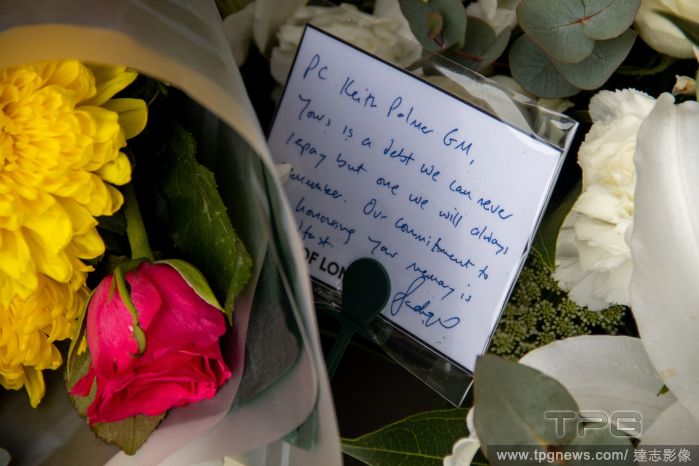 PC Keith Palmer GM,
Yours is a debt we can never
repay but one we will always
remember. Our commitment to
honouring your memory is
OF LON
Sadiq
TPG
www.tpgnews.com/ 達志影像